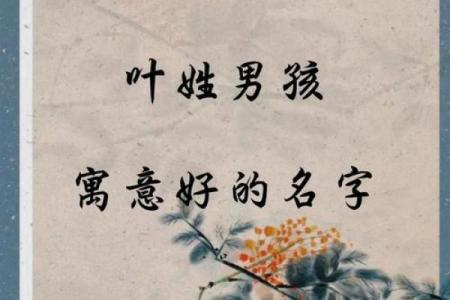 叶姓男孩
寓意好的名字